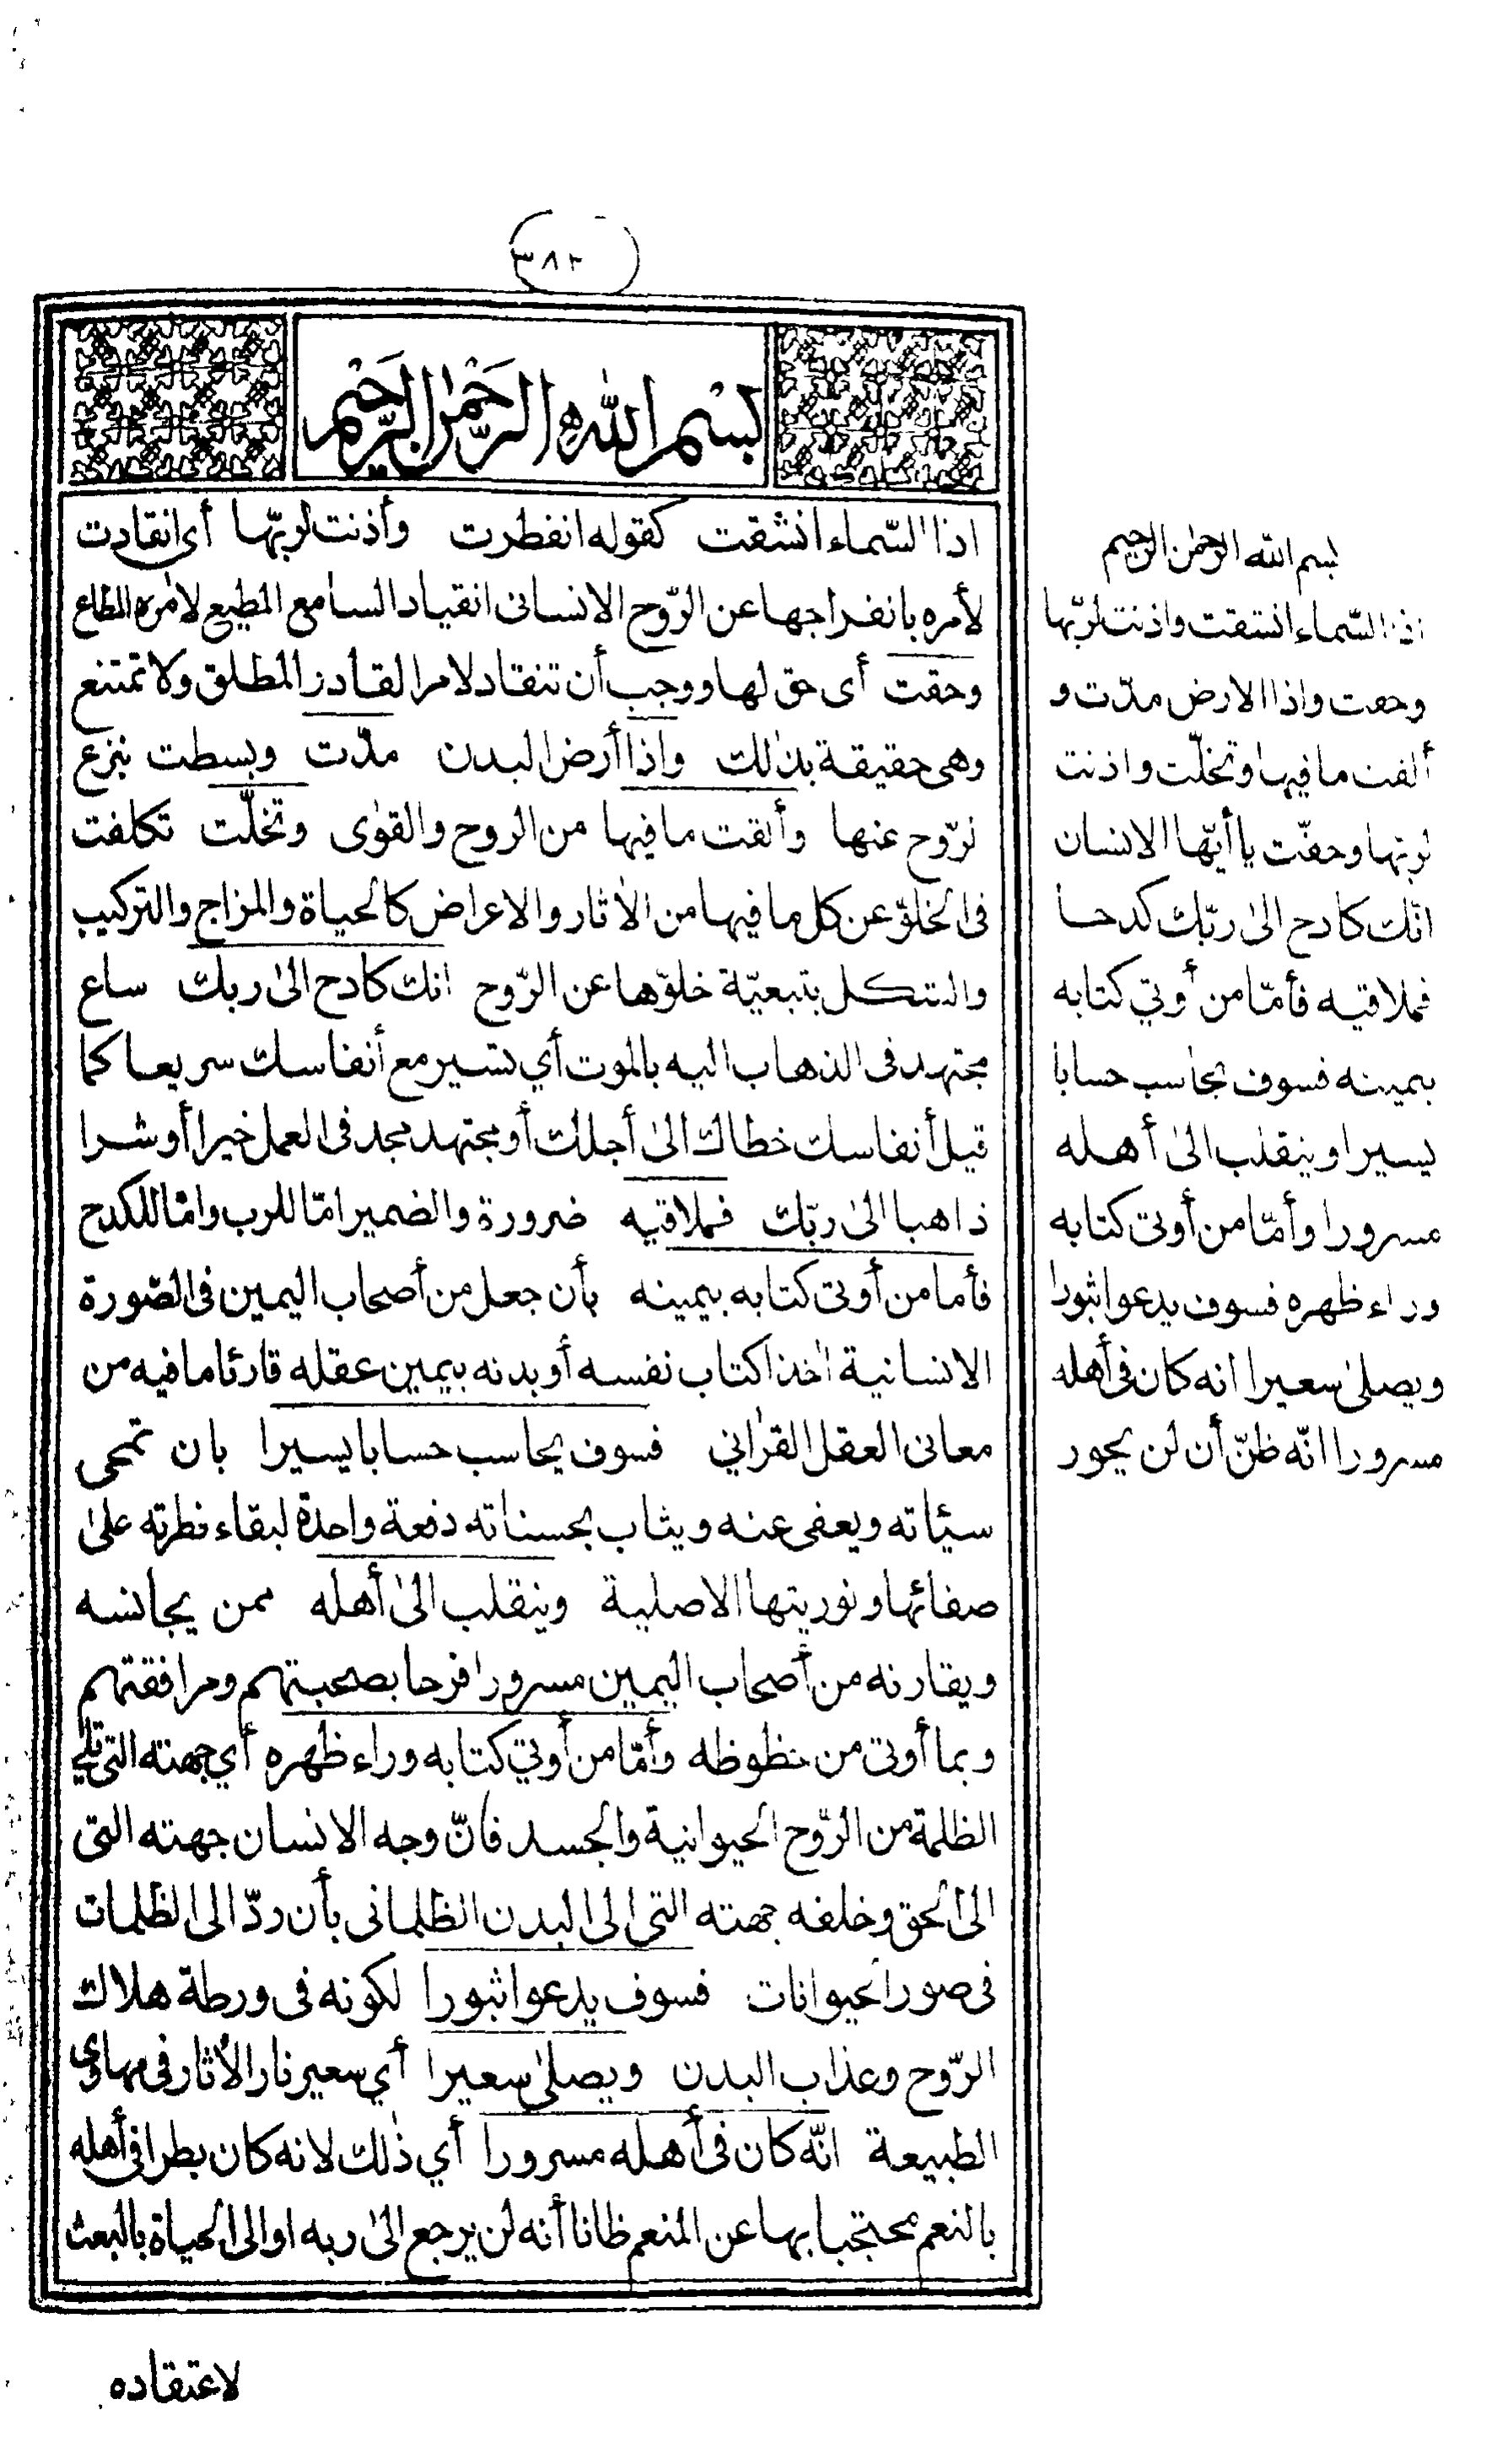 ٣٨٢
بسم الله الرحمن الرحيم
اذا السّماء انشقت كقوله انفطرت وأذنت لربّها أى انقادت
لأمره بانفراجها عن الرّوح الانسانى انقياد السامع المطيع لامره المطاع
وحقت أى حق لها ووجب أن تنقاد لامر القادر المطلق ولا تمتنع
وهى حقيقة بذلك واذا أرض البدن مدّت وبسطت بنزع
لرّوح عنها وألقت ما فيها من الروح والقوى وتخلّت تكلفت
فى الخلوّ عن كل ما فيها من الآثار والاعراض كالحياة والمزاج والتركيب
والتشكل بتبعيّة خلوّها عن الرّوح انك كادح الى ربك ساع
مجتهد فى الذهاب اليه بالموت أي تسير مع أنفاسك سريعا كما
قيل أنفاسك خطاك الى أجلك أو مجتهد مجد فى العمل خيرا أو شرا
ذاهبا الى ربّك فملاقيه ضرورة والضمير امّا للرب وامّا للكدح
فأما من أوتى كتابه بيمينه بأن جعل من أصحاب اليمين فى الصّورة
الانسانية اٰخذا كتاب نفسه أو بدنه بيمين عقله قارئا ما فيه من
معانى العقل القرآني فسوف يحاسب حسابا يسيرا بان تمحى
سيّاته ويعفى عنه ويثاب بحسناته دفعة واحدة لبقاء فطرته على
صفائها ونوريتها الاصلية وينقلب الى أهله ممن يجانسه
ويقارنه من أصحاب اليمين مسرورا فرحا بصحبتهم ومرافقتهم
وبما أوتى من حظوظه وأمّا من أوتي كتابه وراء ظهره أي جهته التى تلي
الظلمة من الرّوح الحيوانية والجسد فانّ وجه الانسان جهته التى
الى الحق وخلفه جهته التى الى البدن الظلمانى بأن ردّ الى الظلمات
فى صور الحيوانات فسوف يدعوا ثبورا لكونه فى ورطة هلاك
الرّوح وعذاب البدن ويصلى سعيرا أي سعير نار الاٰثار فى مهاوى
الطبيعة انّه كان فى أهله مسرورا أي ذٰلك لانه كان بطرا فى أهله
بالنعم محتجبا بها عن المنعم ظانا أنه لن يرجع الى ربه او الى الحياة بالبعث
لاعتقاده
بسم الله الرحمن الرحيم
اذا السّماء انشقت واذنت لربّها
وحقت واذا الارض مدّت و
ألقت ما فيها وتخلّت واذنت
لربّها وحقّت يا أيّها الانسان
انّك كادح الى ربّك كدحا
فملاقيه فأمّا من أوتي كتابه
بيمينه فسوف يحاسب حسابا
يسيرا وينقلب الى أهله
مسرورا وأمّا من أوتى كتابه
وراء ظهره فسوف يدعوا ثبورا
ويصلى سعيرا انه كان فى أهله
مسرورا انّه ظنّ أن لن يحور